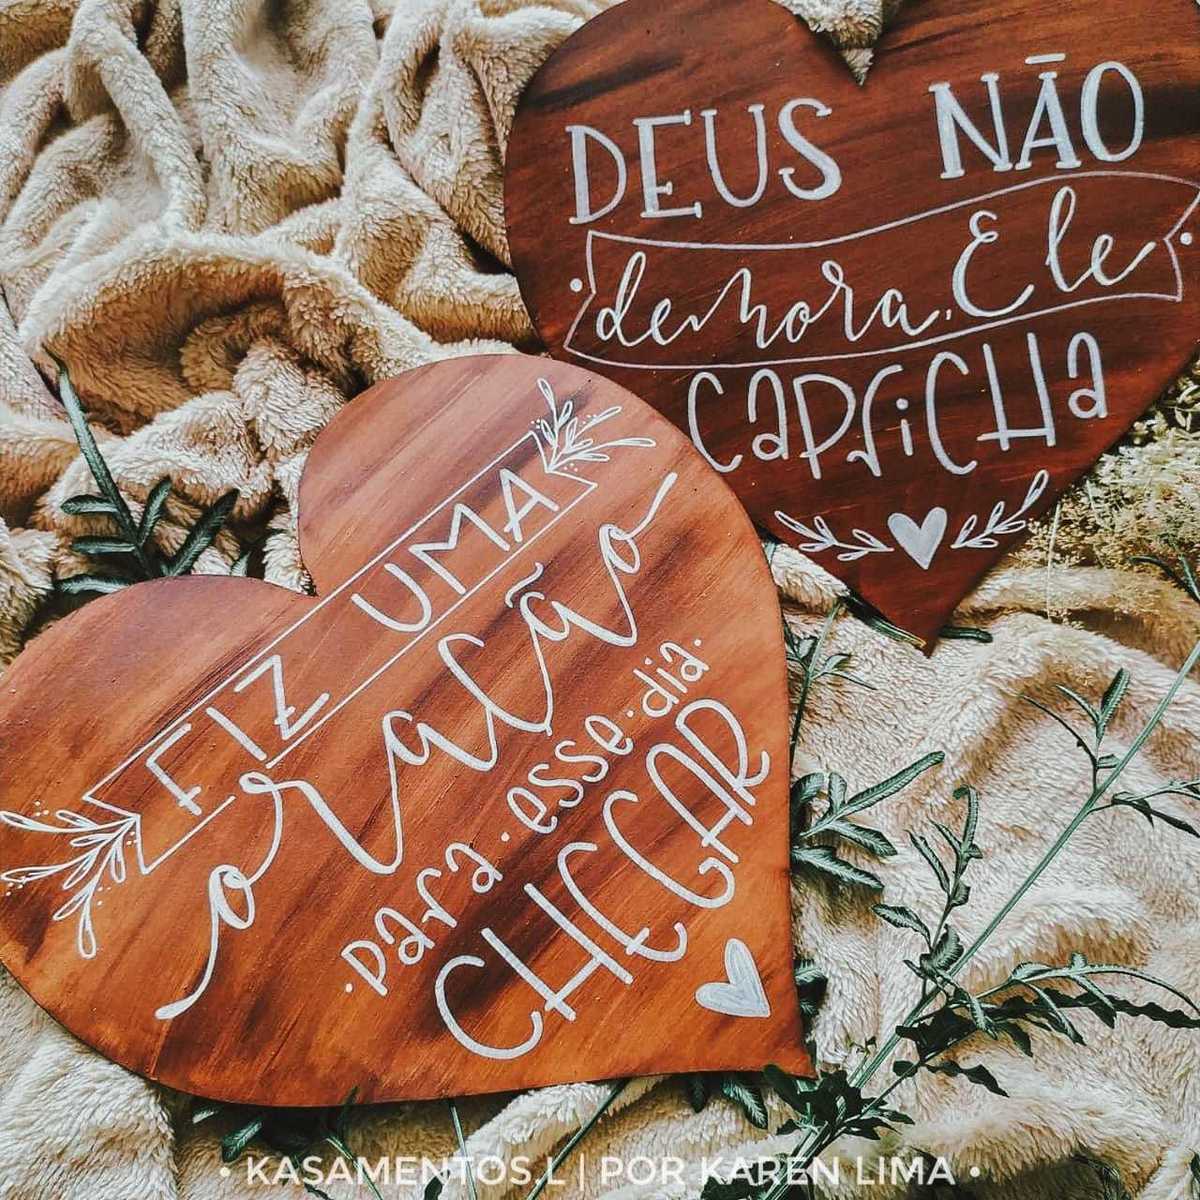 DEUS NÃO
demora, Ele
CAPriCHa
FIZ UMA
oração
·para·esse·dia·
CHEGAR
• KASAMENTOS.L | POR KAREN LIMA •